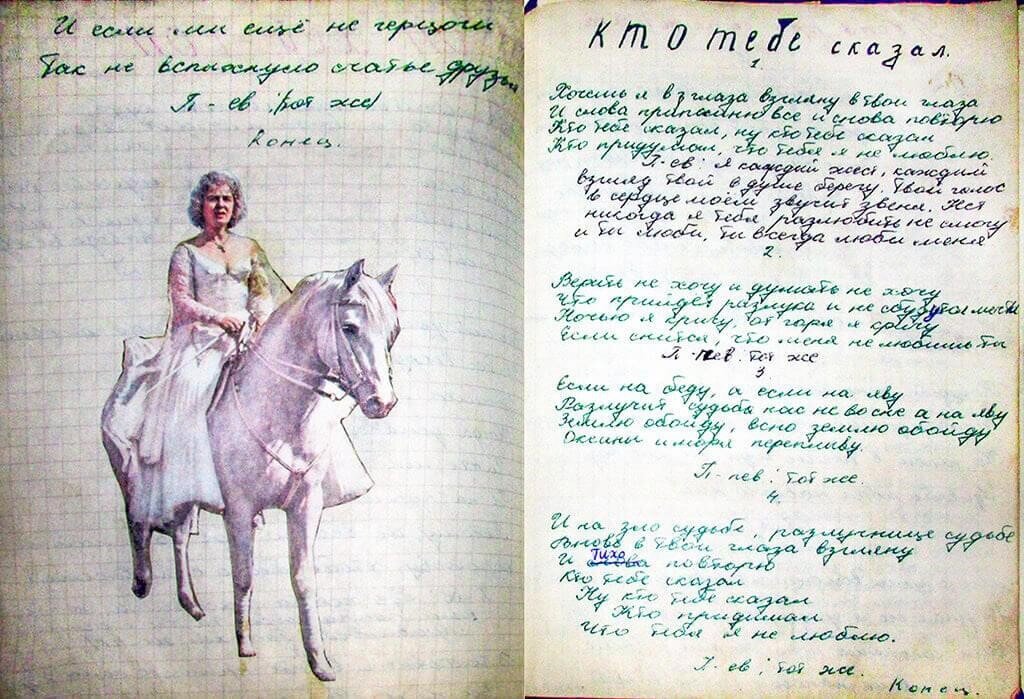 И если ми ещё не герцоги
Так не вспихнуло счатье друзья
П-ев: /тот же/
Конец.
Кто тебе сказал.
1
Хочешь я в глаза взгляну в твои глаза
И слова припомню все и снова повторю
Кто тебе сказал, ну кто тебе сказал
Кто придумал, что тебя я не люблю.
П-ев: Я каждий жест, каждий
взгляд твой в душе берегу. Твой голос
в сердце моём звучит звеня. Нет
никогда я тебя разлюбить не смогу
и ти люби, ти всегда люби меня
2.
Верить не хочу и думать не хочу
Что прийдёт разлука и не сбудутся мечти
Ночью я кричу, от горя я кричу
Если снится, что меня не любишь ти
П-пев: тот же
3
Если на беду, а если на яву
Разлучит судьба нас не во сне а на яву
Землю обойду, всю землю обойду
Океаны и моря переплыву.
П-пев: тот же.
4.
И на зло судьбе, разлучнице судьбе
Вновь в твои глаза взгляну
И тихо повторю
Кто тебе сказал
Ну кто тебе сказал
Кто придумал
Что тебя я не люблю.
П-ев: тот же.
Конец